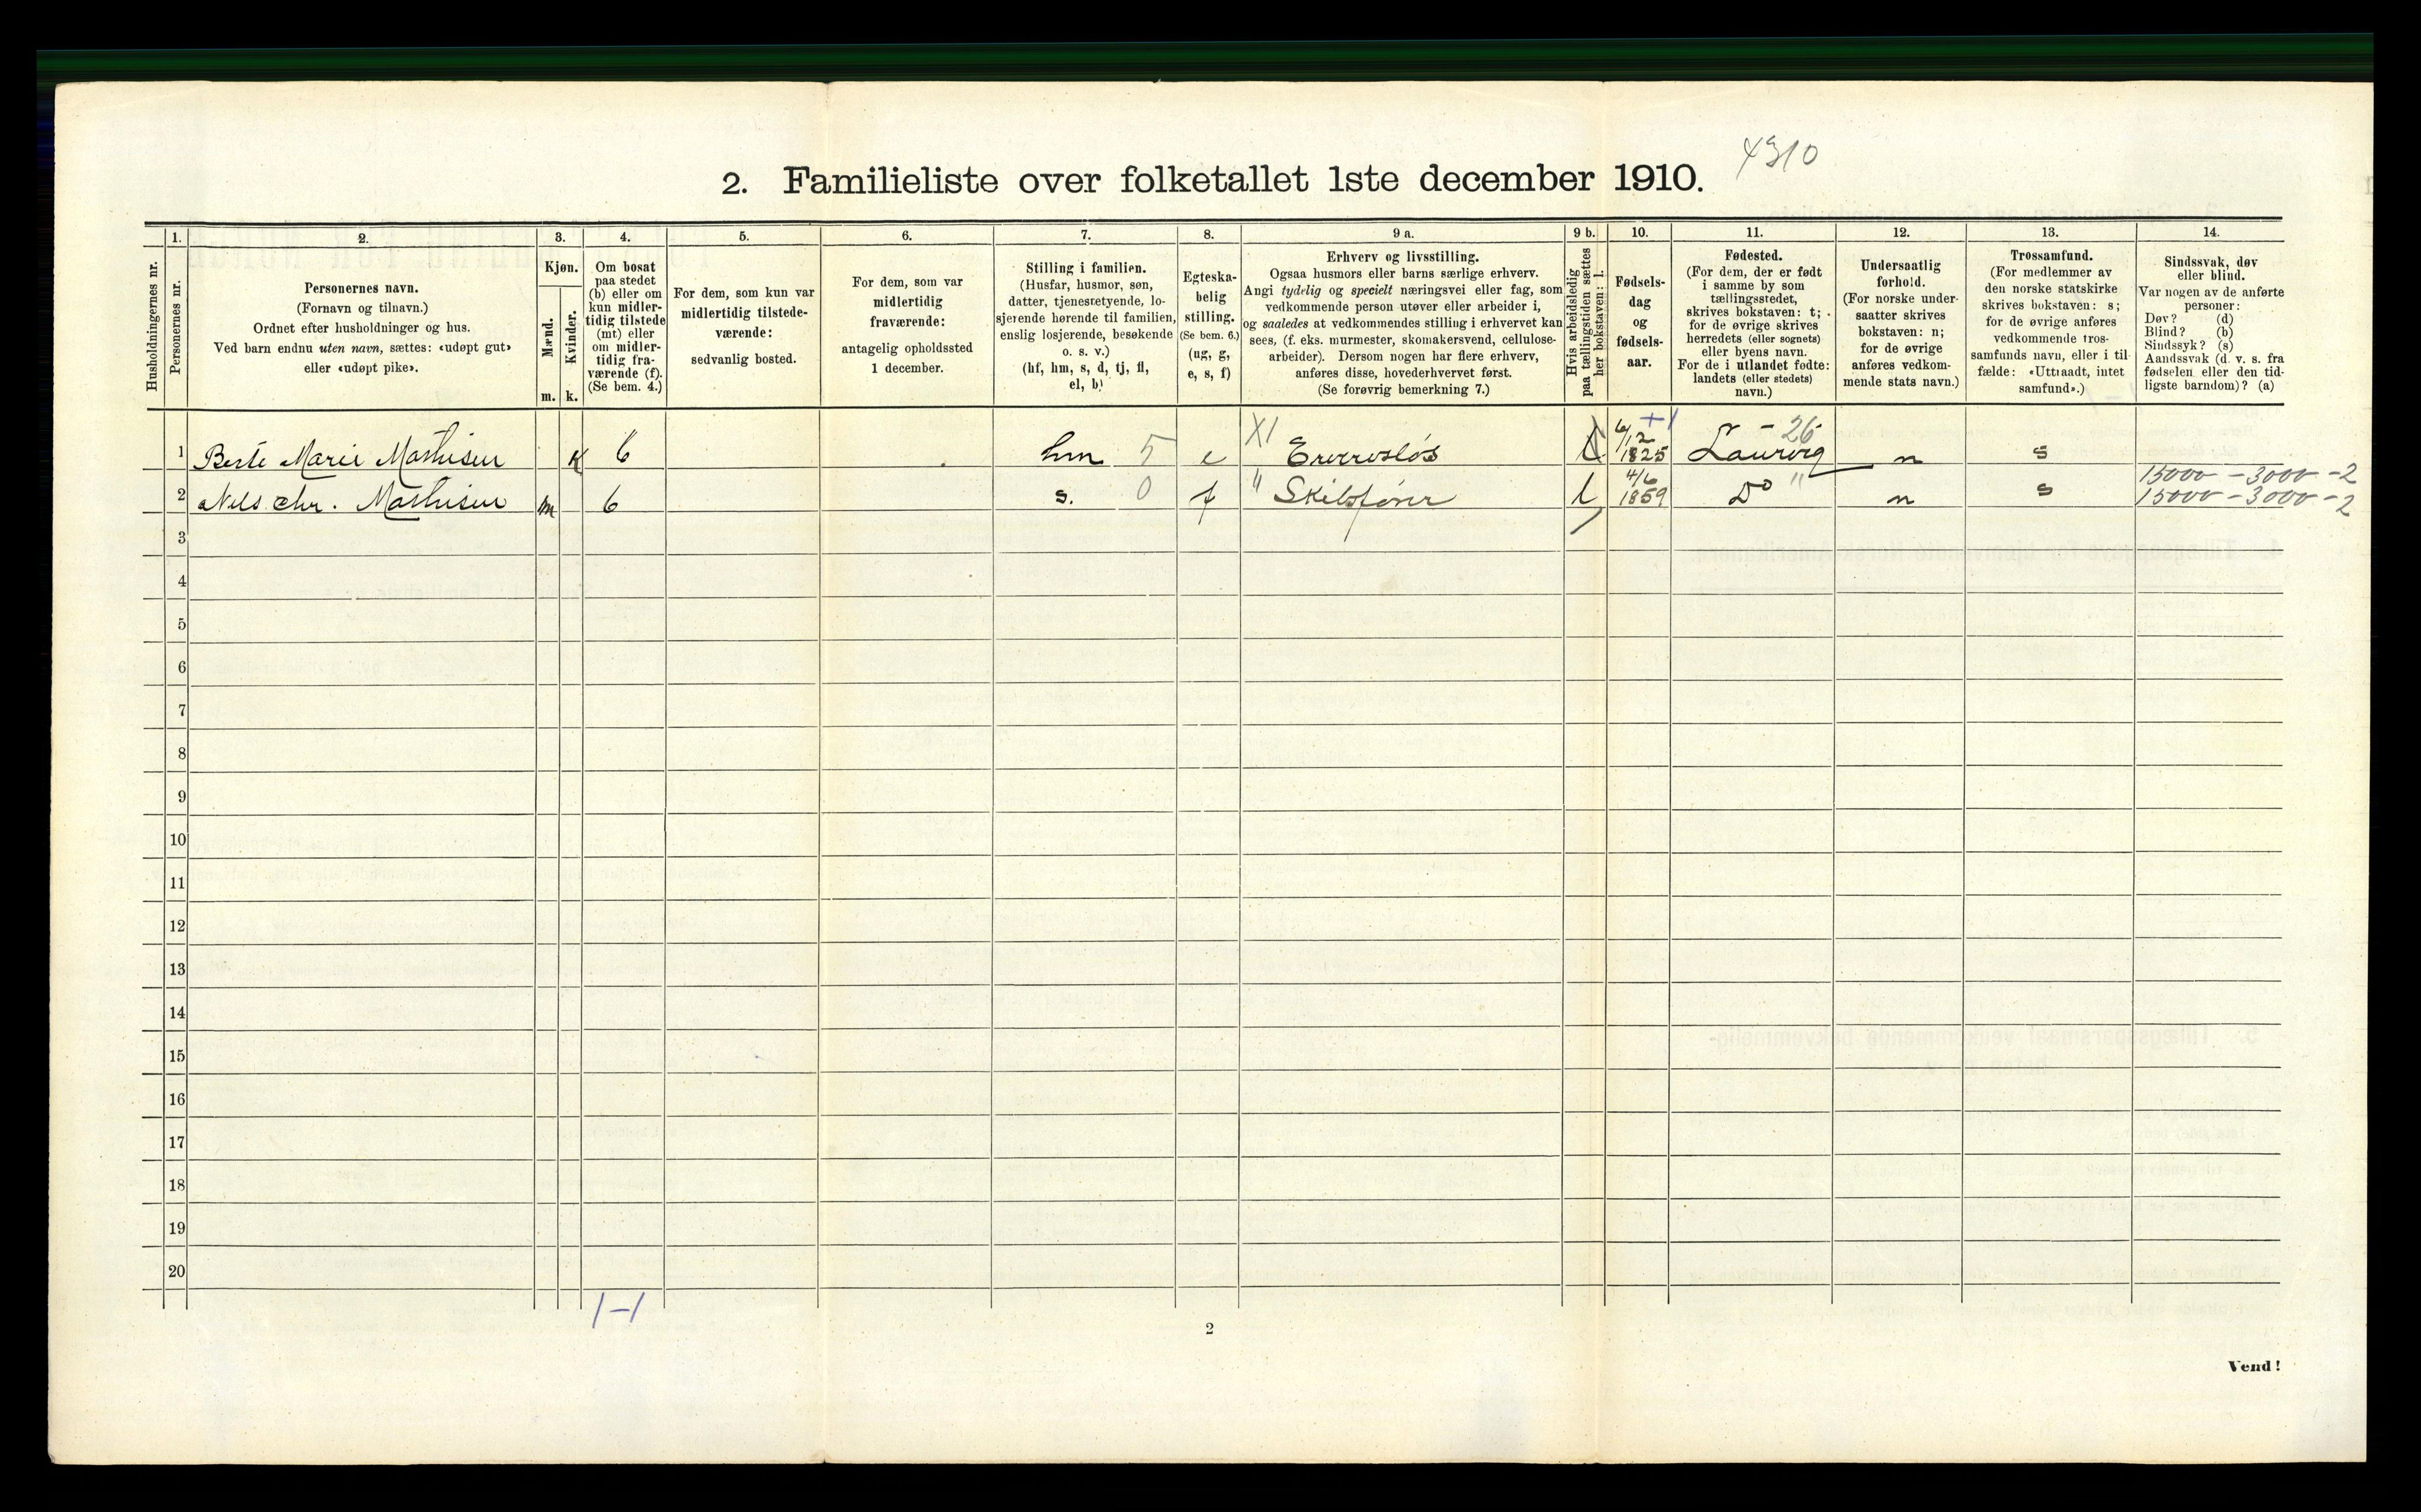 4310
2. Familieliste over folketallet 1ste december 1910.
Husholdningernes nr.
1.
Personernes nr.
2.
Personernes navn.
(Fornavn og tilnavn.)
Ordnet efter husholdninger og hus.
Ved barn endnu uten navn, sættes: «udøpt gut»
eller «udøpt pike».
3.
Kjøn.
Mænd.
Kvinder.
m. k.
4.
Om bosat
paa stedet
(b) eller om
kun midler-
tidig tilstede
(mt) eller
om midler-
tidig fra-
værende (f).
(Se bem. 4.)
5.
For dem, som kun var
midlertidig tilstede-
værende:
sedvanlig bosted.
6.
For dem, som var
midlertidig
fraværende:
antagelig opholdssted
1 december.
7.
Stilling i familien.
(Husfar, husmor, søn,
datter, tjenestetyende, lo-
sjerende hørende til familien,
enslig losjerende, besøkende
o. s. v.)
(hf, hm, s, d, tj, fl,
el, b)
8.
Egteska-
belig
stilling.
(Se bem. 6.)
(ug, g,
e, s, f)
9 a.
Erhverv og livsstilling.
Ogsaa husmors eller barns særlige erhverv.
Angi tydelig og specielt næringsvei eller fag, som
vedkommende person utøver eller arbeider i,
og saaledes at vedkommendes stilling i erhvervet kan
sees, (f. eks. murmester, skomakersvend, cellulose-
arbeider). Dersom nogen har flere erhverv,
anføres disse, hovederhvervet først.
(Se forøvrig bemerkning 7.)
9 b.
Hvis arbeidsledig
paa tællingstiden sættes
her bokstaven: l.
10.
Fødsels-
dag
og
fødsels-
aar.
11.
Fødested.
(For dem, der er født
i samme by som
tællingsstedet,
skrives bokstaven: t;
for de øvrige skrives
herredets (eller sognets)
eller byens navn.
For de i utlandet fødte:
landets (eller stedets)
navn.)
12.
Undersaatlig
forhold.
(For norske under-
saatter skrives
bokstaven: n;
for de øvrige
anføres vedkom-
mende stats navn.)
13.
Trossamfund.
(For medlemmer av
den norske statskirke
skrives bokstaven: s;
for de øvrige anføres
vedkommende tros-
samfunds navn, eller i til-
fælde: «Uttraadt, intet
samfund».)
14.
Sindssvak, døv
eller blind.
Var nogen av de anførte
personer:
Døv? (d)
Blind? (b)
Sindssyk? (s)
Aandssvak (d. v. s. fra
fødselen eller den tid-
ligste barndom)? (a)
1 Berte Marie Mathisen K b hm 5 e XI Erverosløs 6/12 1825 Laurvig - 26 n s 15000 - 3000 - 2
2 Nils Chr. Mathisen m b s. 0 f " Skibsfører l 4/6 1859 Do " n s 15000 - 3000 - 2
3
4
5
6
7
8
9
10
11
12
13
14
15
16
17
18
19
20
1-1
2
Vend!